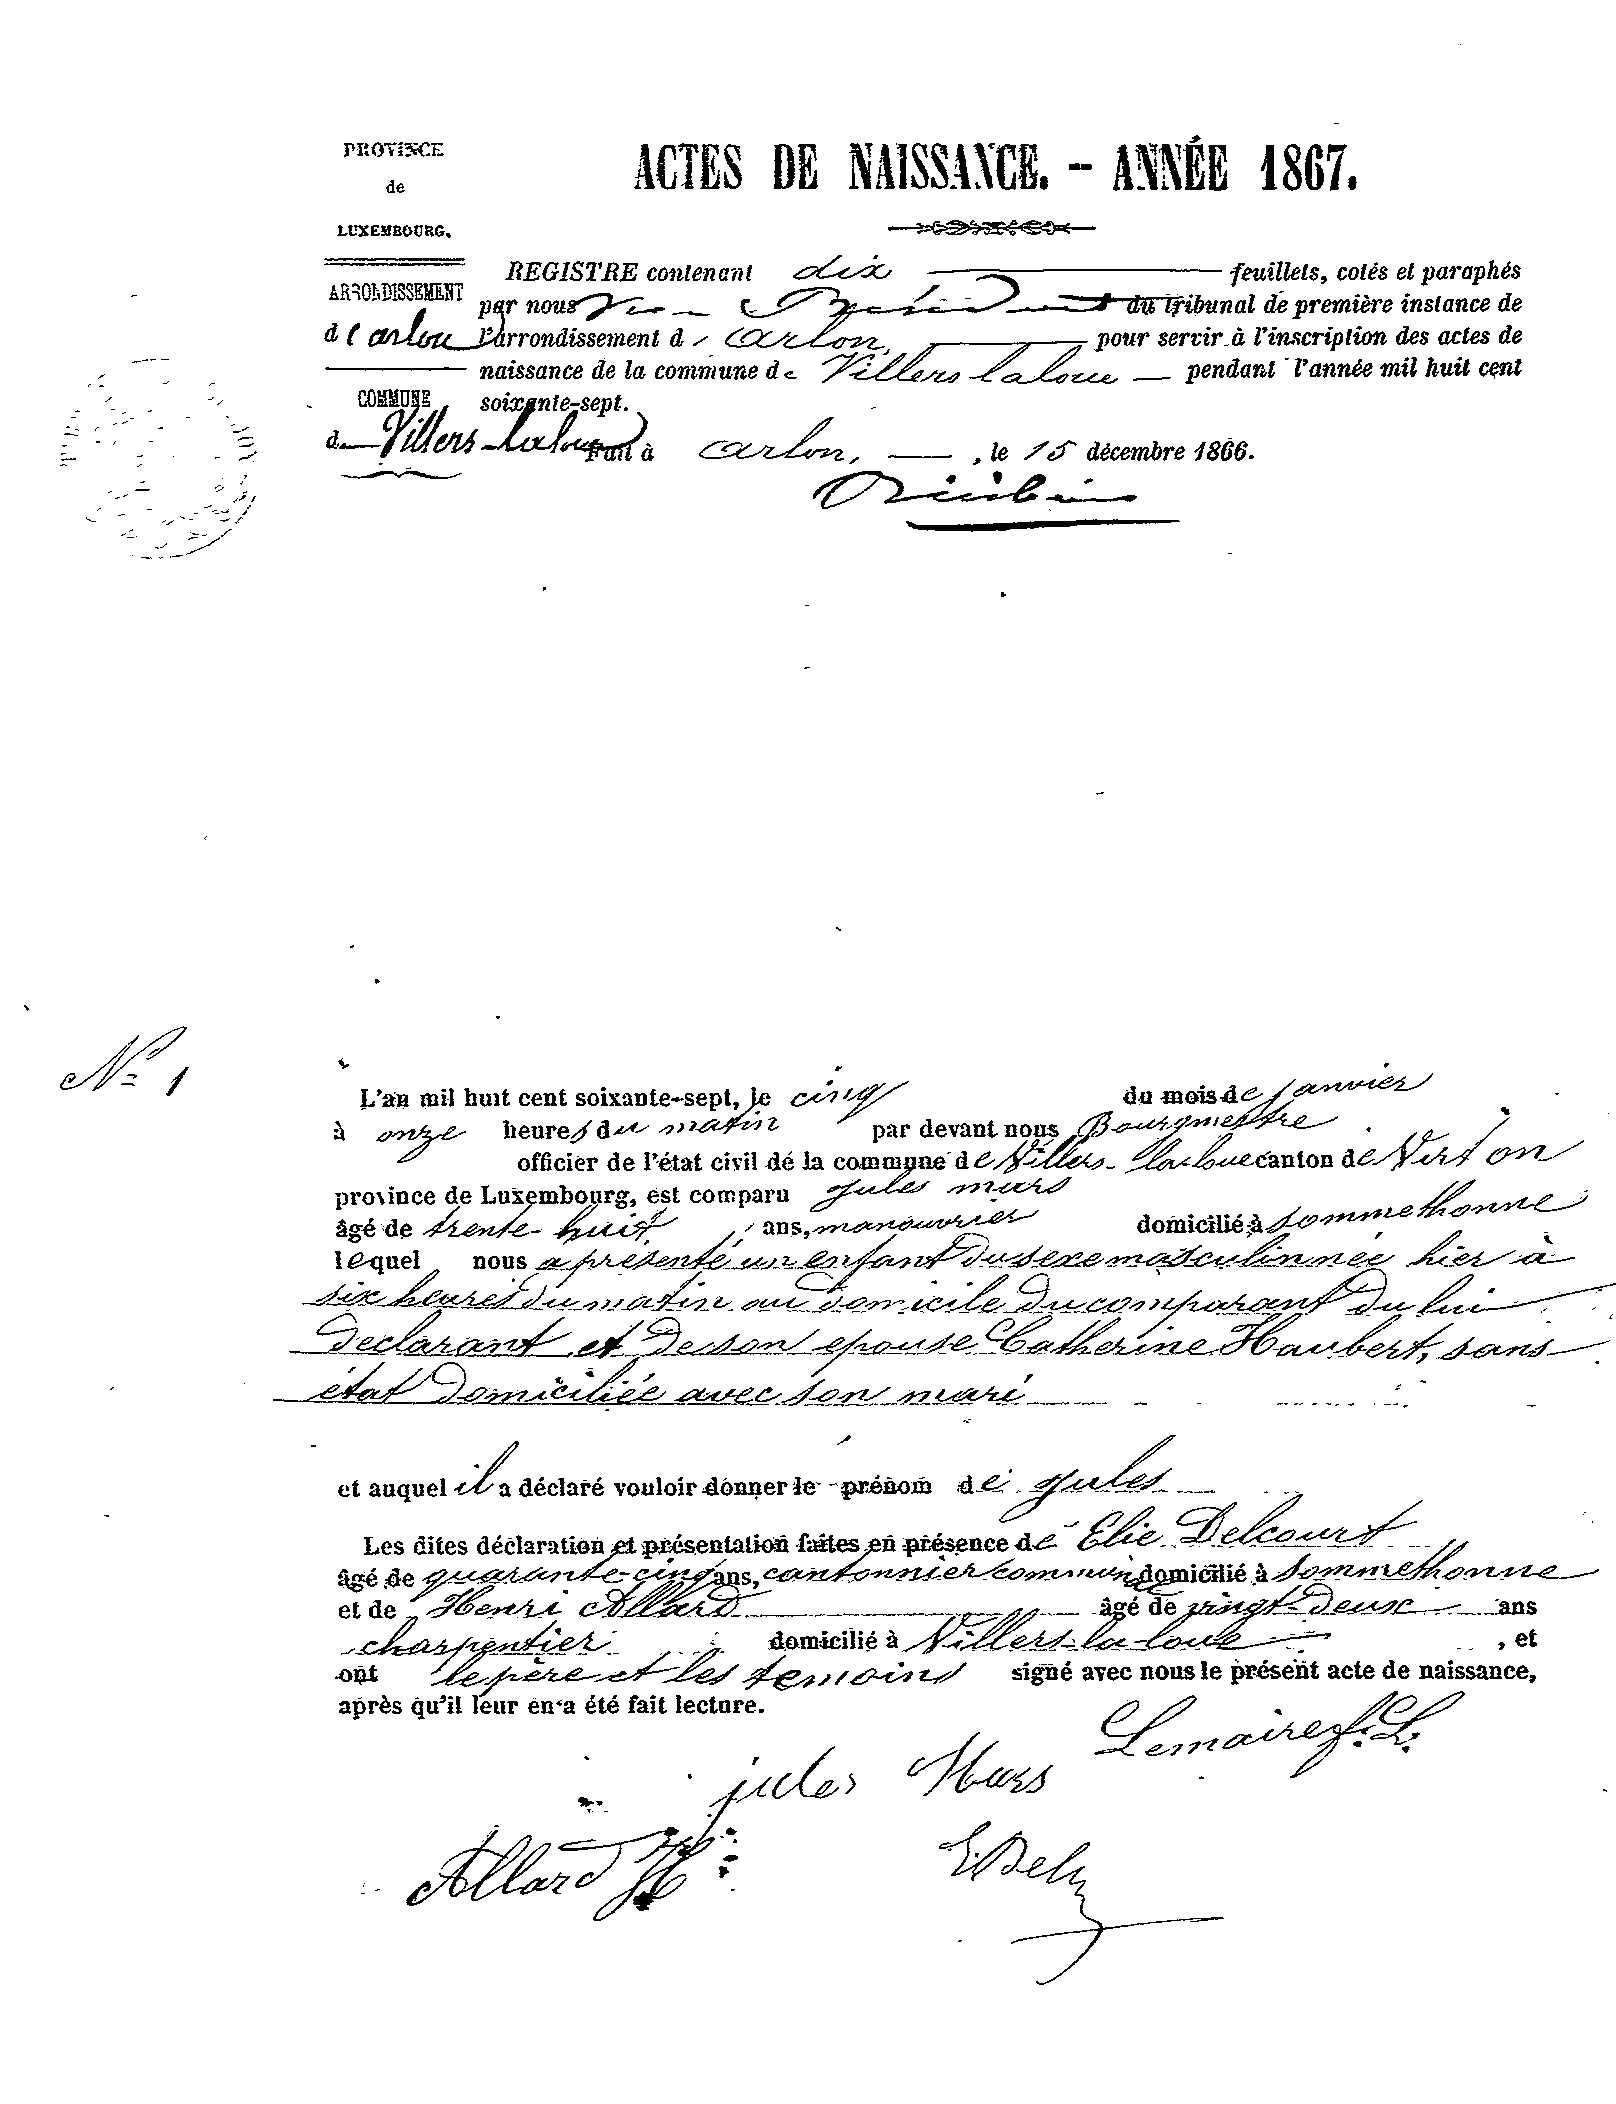 PROVINCE
de
LUXEMBOURG.
ACTES DE NAISSANCE. - ANNÉE 1867.
ARRONDISSEMENT
d'arlon
COMMUNE
de Villers-laloue
REGISTRE contenant dix feuillets, cotés et paraphés
par nous Vice Président du tribunal de première instance de
l'arrondissement d'arlon, pour servir à l'inscription des actes de
naissance de la commune de Villers laloue pendant l'année mil huit cent
soixante-sept.
Fait à arlon, , le 15 décembre 1866.
N° 1
L'an mil huit cent soixante-sept, le cinq du mois de janvier
à onze heures du matin par devant nous Bourgmestre
officier de l'état civil de la commune de Villers-laloue canton de Virton
province de Luxembourg, est comparu jules mars
âgé de trente-huit ans, manouvrier domicilié à Sommethonne
lequel nous a présenté un enfant du sexe masculin née hier à
six heures du matin au domicile du comparant du lui
declarant et de son epouse Catherine Haubert, sans
état domiciliée avec son mari
et auquel il a déclaré vouloir donner le prénom de jules
Les dites déclaration et présentation faites en présence de Elie Delcourt
âgé de quarante-cinq ans, cantonnier communal domicilié à Sommethonne
et de Henri Allard âgé de vingt-deux ans
charpentier domicilié à Villers-la-loue , et
ont le père et les temoins signé avec nous le présent acte de naissance,
après qu'il leur en a été fait lecture.
Lemaire f. L.
jules Mars
Allard H
E Delc